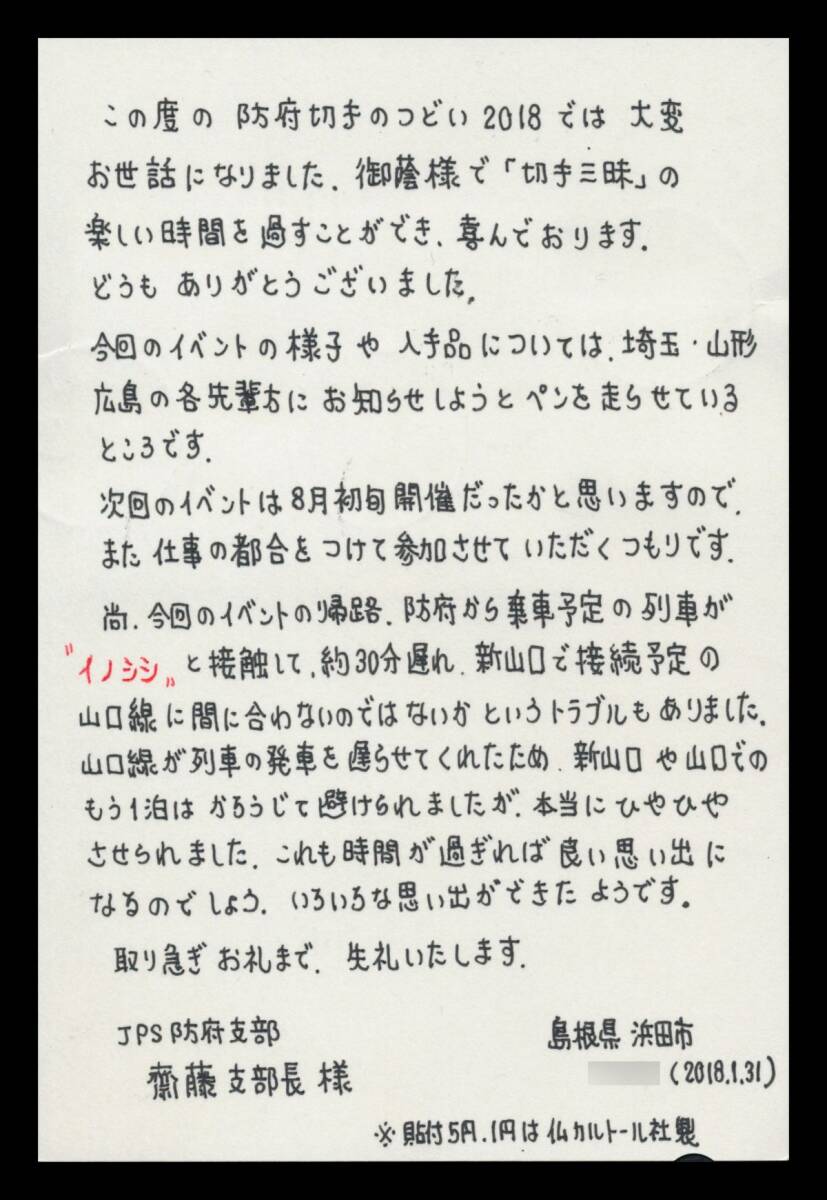 この度の 防府切手のつどい 2018 では 大変
お世話になりました. 御蔭様で「切手三昧」の
楽しい時間を過すことができ、喜んでおります.
どうも ありがとうございました.
今回のイベントの様子や 入手品については、埼玉・山形
広島の各先輩方に お知らせしようと ペンを走らせている
ところです.
次回のイベントは8月初旬開催だったかと思いますので、
また 仕事の都合をつけて参加させて いただくつもりです.
尚、今回のイベントの帰路、防府から乗車予定の列車が
"イノシシ" と接触して、約30分遅れ、新山口で接続予定の
山口線に間に合わないのではないか というトラブルも ありました.
山口線が列車の発車を遅らせてくれたため、新山口や山口での
もう1泊は かろうじて避けられましたが、本当に ひやひや
させられました. これも時間が過ぎれば良い思い出に
なるのでしょう. いろいろな思い出ができた ようです。
取り急ぎ お礼まで. 失礼いたします.
JPS防府支部
齋藤 支部長 様
島根県 浜田市
(2018.1.31)
※貼付5円、1円は仏カルトール社製